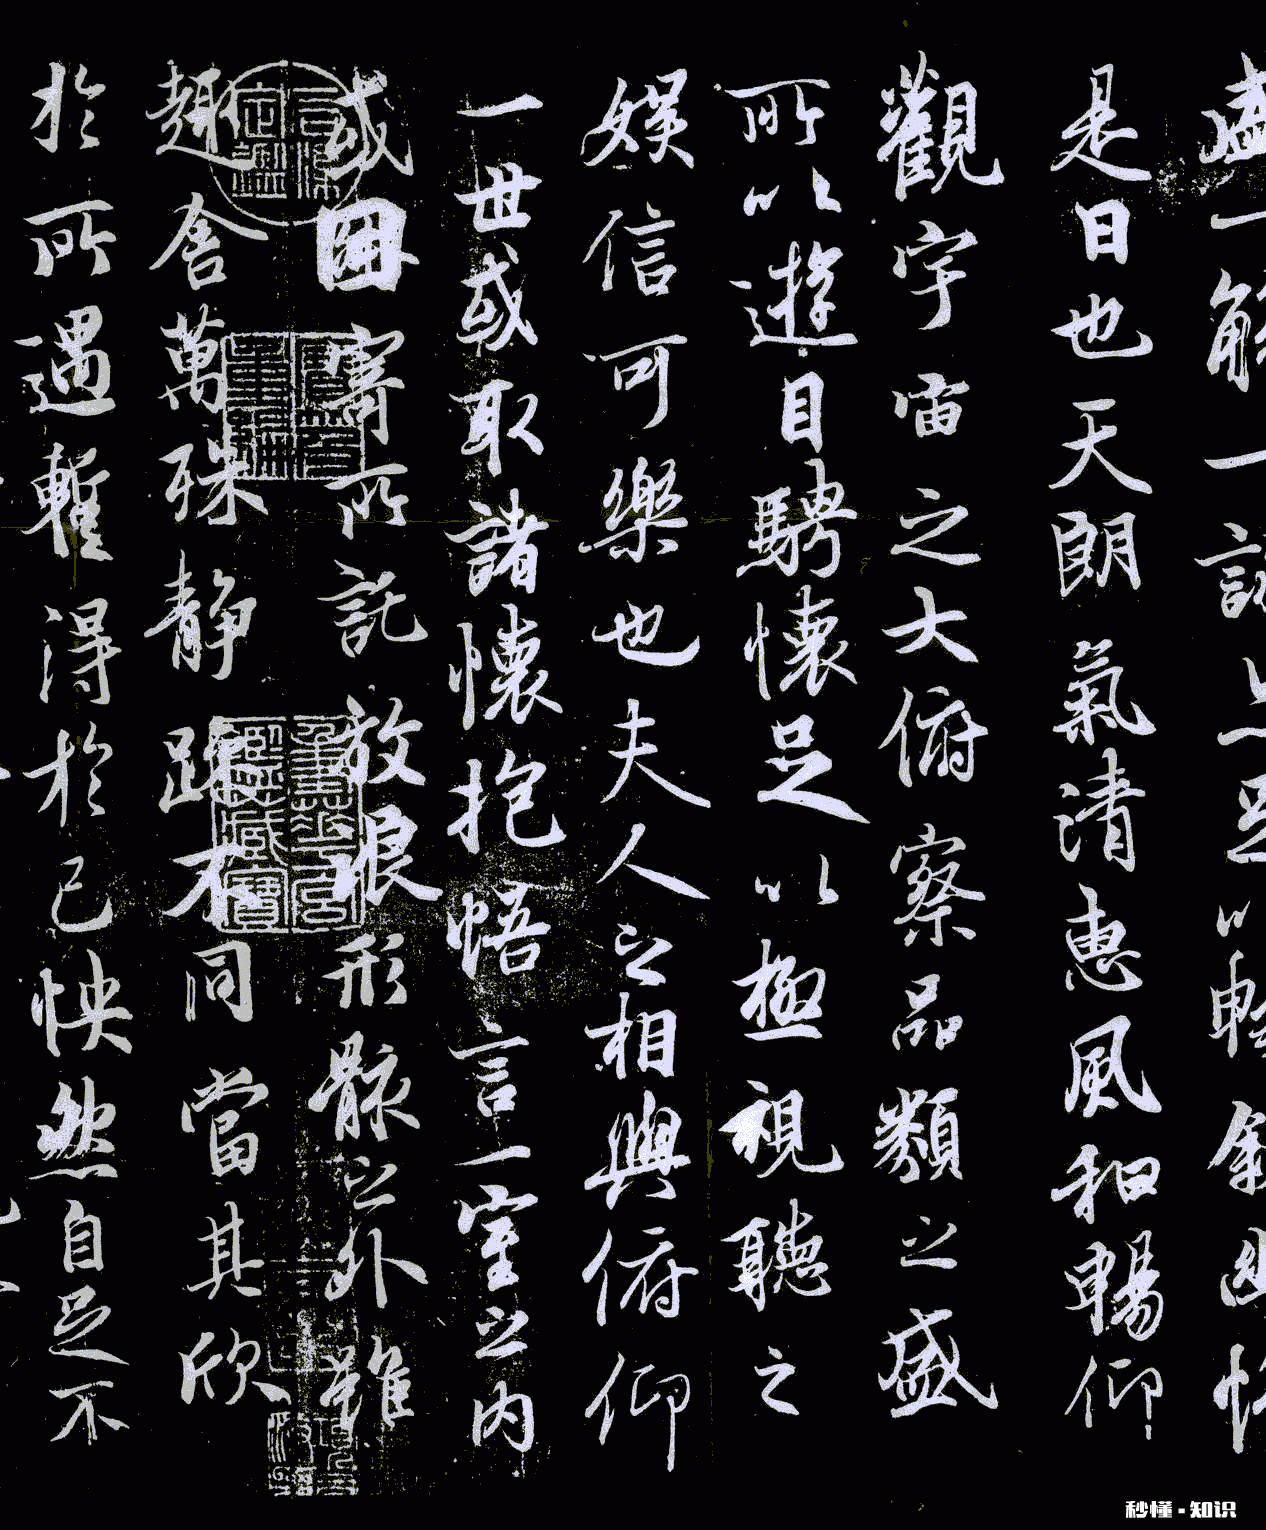 盛一觴一詠亦足以暢敘幽情
是日也天朗氣清惠風和暢仰
觀宇宙之大俯察品類之盛
所以遊目騁懷足以極視聽之
娛信可樂也夫人之相與俯仰
一世或取諸懷抱悟言一室之內
或因寄所託放浪形骸之外雖
趣舍萬殊靜躁不同當其欣
於所遇暫得於己怏然自足不
秒懂·知识